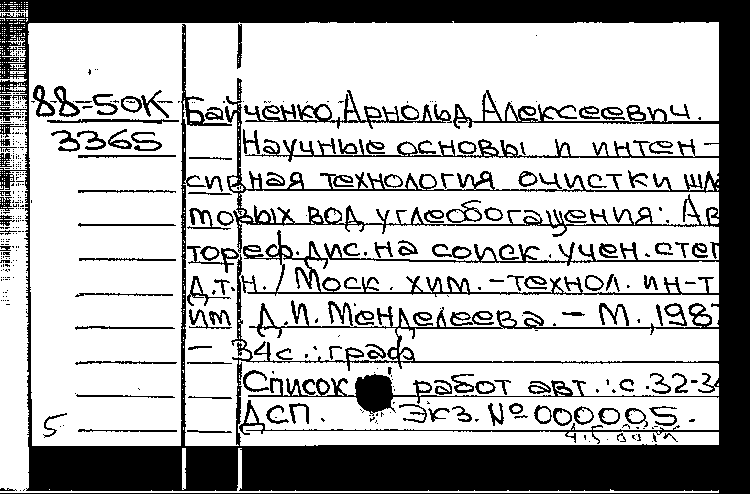 88-50К Байченко, Арнольд Алексеевич.
3365 Научные основы и интен-
сивная технология очистки шла
мовых вод углеобогащения: Ав
тореф. дис. на соиск. учен. степ
д.т.н. / Моск. хим.-технол. ин-т
им. Д.И. Менделеева. - М., 1987
- 34с.: граф
Список работ авт.: с. 32-34
ДСП. Экз. № 000005.
5